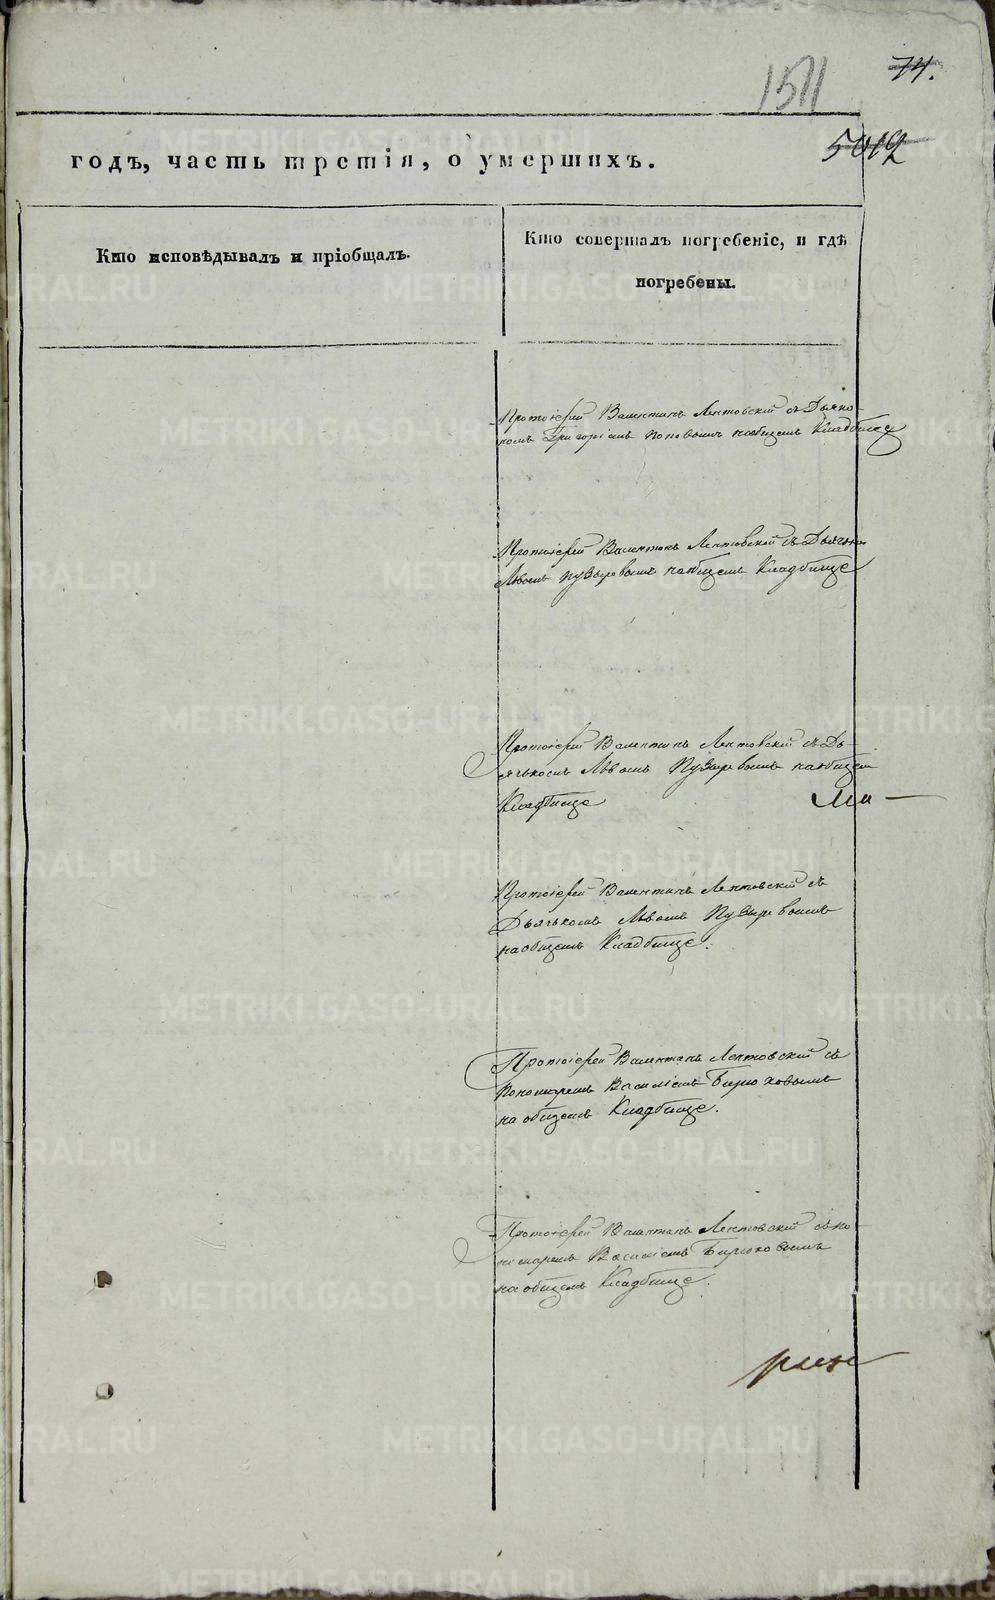 1511
74.
годъ, часть третія, о умершихъ.
Кто исповѣдывалъ и пріобщалъ.
Кто совершалъ погребеніе, и гдѣ
погребены.
Протоіерей Валентинъ Лентовскій съ Дьяко-
номъ Григоріемъ Поповымъ на общемъ Кладбище
Протоіерей Валентинъ Лентовской съ Дьячкомъ
Львомъ Пузыревымъ на общемъ Кладбище
Протоіерей Валентинъ Лентовскій съ Дь-
ячькомъ Львомъ Пузыревымъ на общемъ
Кладбище
Протоіерей Валентинъ Лентовскій съ
Дьячькомъ Львомъ Пузыревымъ
на общемъ Кладбище.
Протоіерей Валентинъ Лентовскій съ
Пономаремъ Василіемъ Бирюковымъ
на общемъ Кладбище.
Протоіерей Валентинъ Лентовскій съ по-
номаремъ Василіемъ Бирюковымъ
на общемъ Кладбище.
METRIKI.GASO-URAL.RU